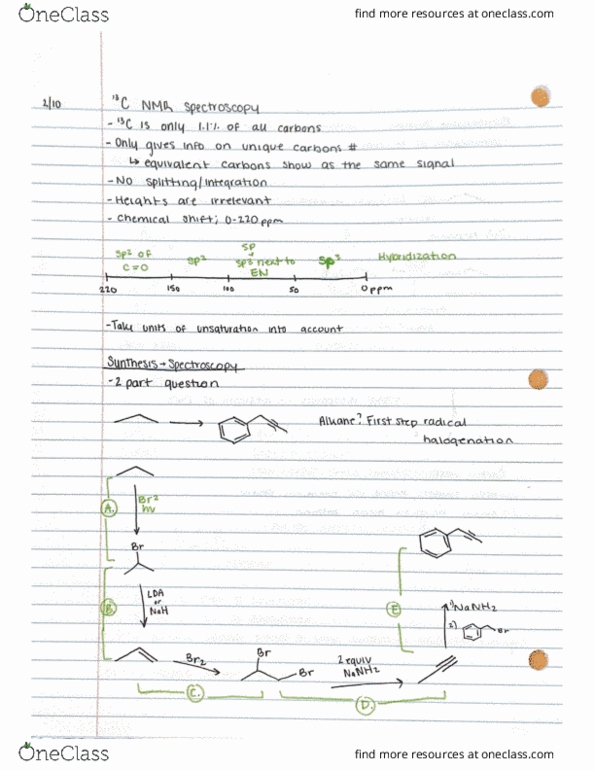 OneClass
find more resources at oneclass.com
2/10
¹³C NMR Spectroscopy
- ¹³C is only 1.1% of all carbons
- Only gives info on unique carbons #
↳ equivalent carbons show as the same signal
- No splitting/integration
- Heights are irrelevant
- Chemical shift; 0-220ppm
sp² of C=O
sp²
sp
sp³ next to EN
sp³
Hybridization
220 150 100 50 0ppm
- Take units of unsaturation into account
Synthesis → Spectroscopy
- 2 part question
Alkane? First step radical
halogenation
A.
Br²
hν
Br
B.
LDA
or
NaH
E
1) NaNH₂
2)
Br
Br₂
Br
Br
2 equiv
NaNH₂
C.
D.
OneClass
find more resources at oneclass.com